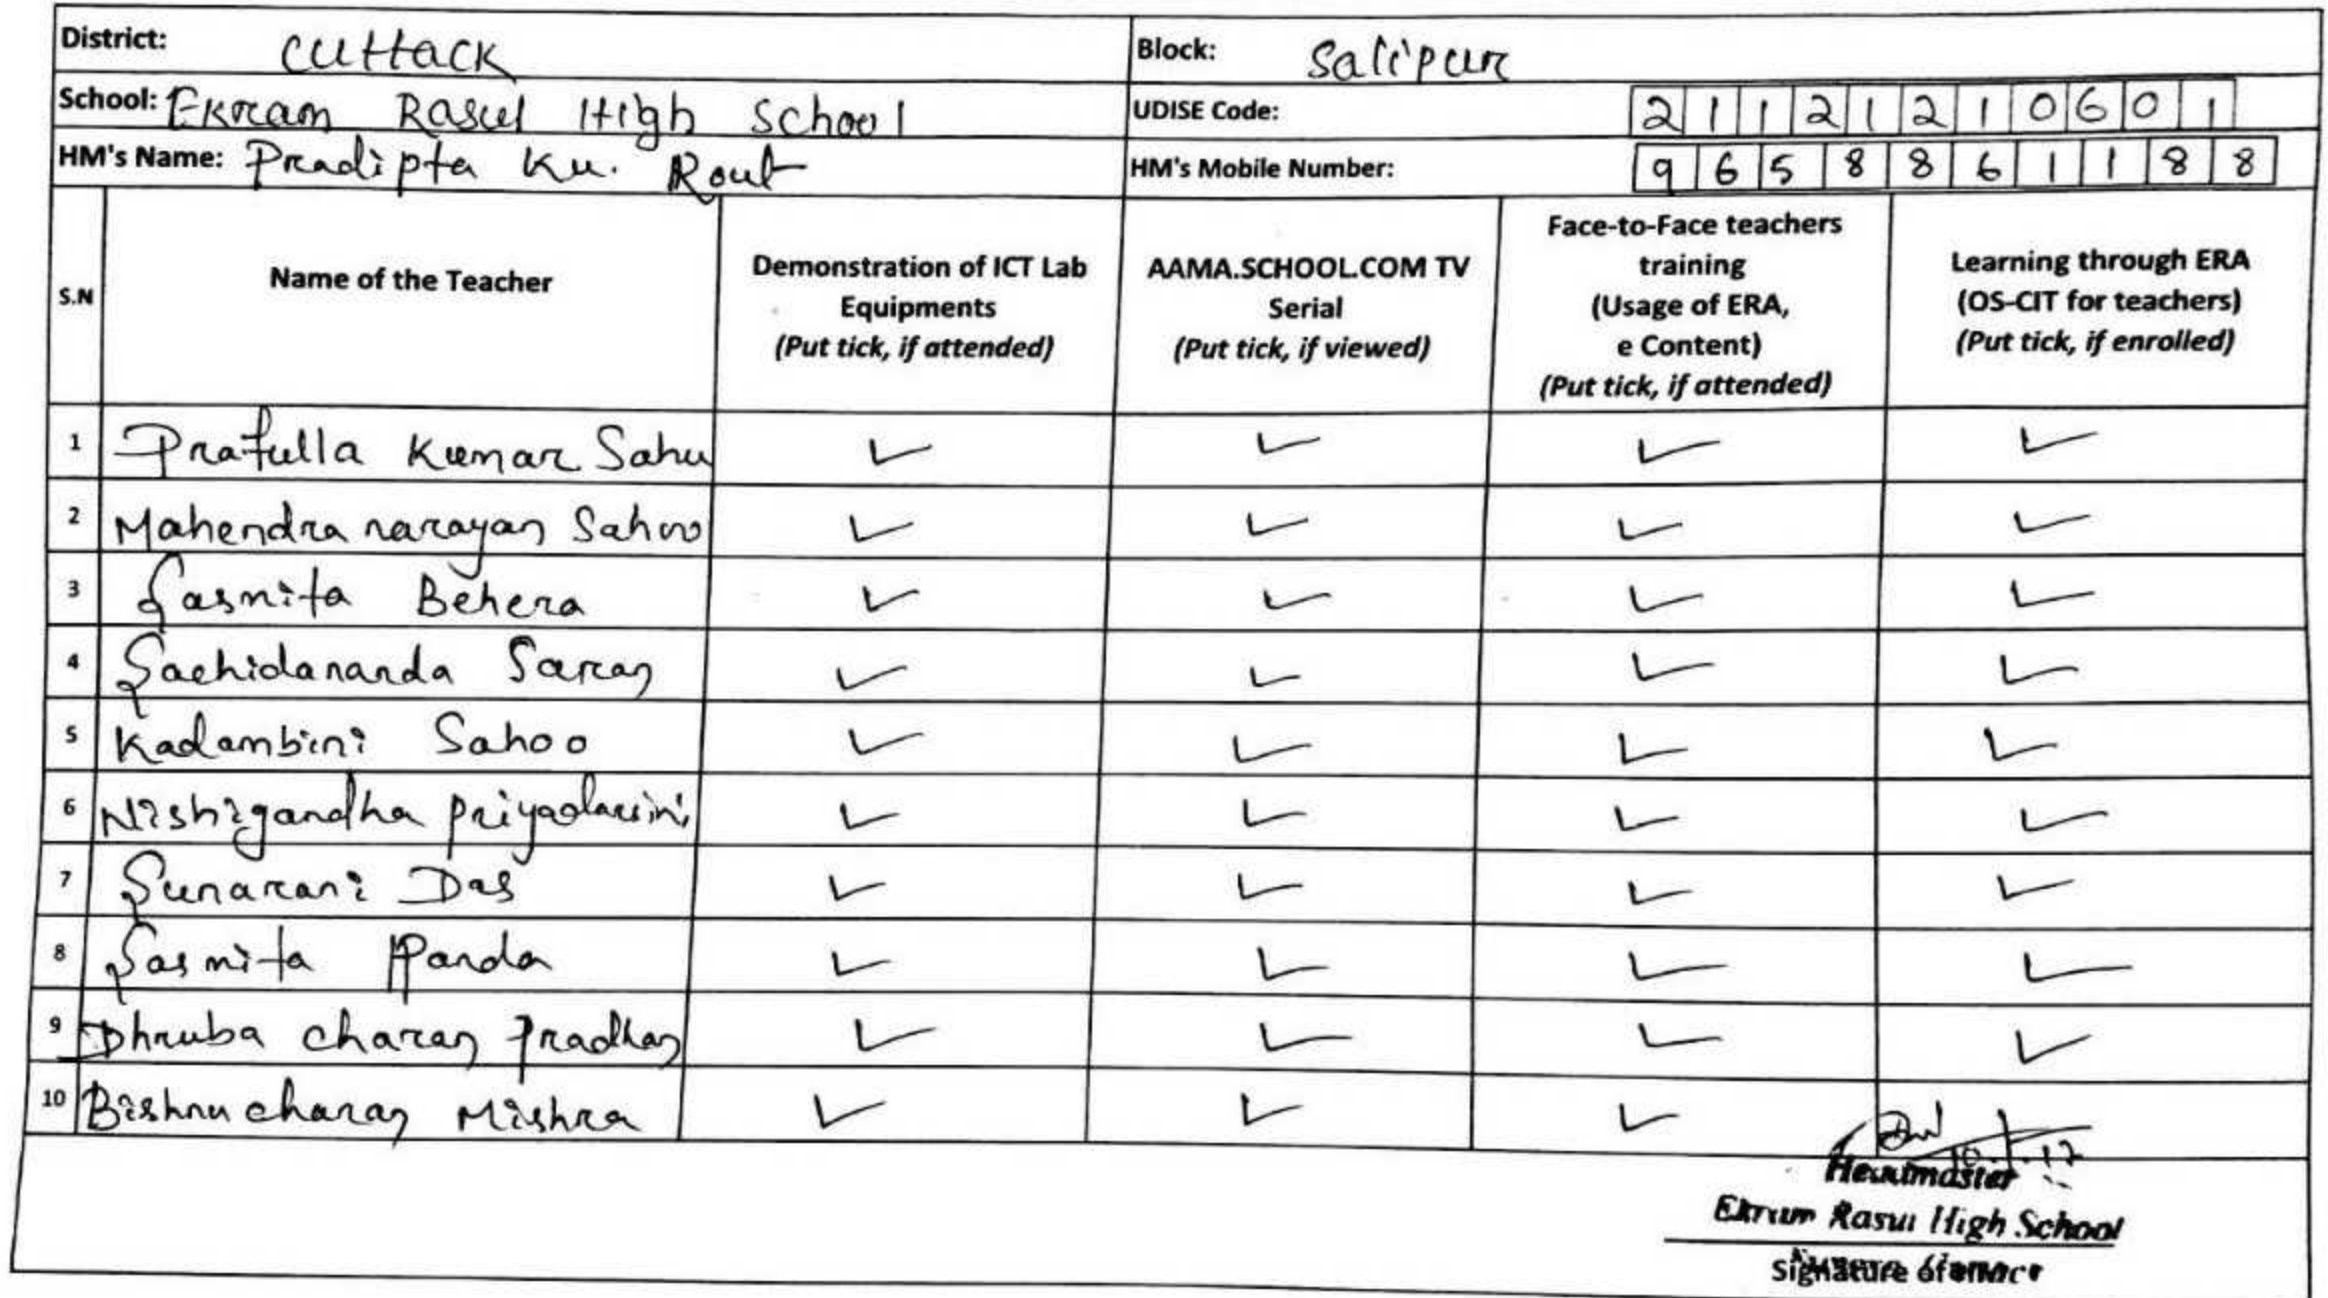 District: Cuttack Block: Salipur
School: Ekram Rasul High School UDISE Code: 21121210601
HM's Name: Pradipta Ku. Rout HM's Mobile Number: 9658861188
S.N Name of the Teacher Demonstration of ICT Lab Equipments (Put tick, if attended) AAMA.SCHOOL.COM TV Serial (Put tick, if viewed) Face-to-Face teachers training (Usage of ERA, e Content) (Put tick, if attended) Learning through ERA (OS-CIT for teachers) (Put tick, if enrolled)
1 Prafulla Kumar Sahu ✓ ✓ ✓ ✓
2 Mahendra narayan Sahoo ✓ ✓ ✓ ✓
3 Sasmita Behera ✓ ✓ ✓ ✓
4 Sachidananda Saran ✓ ✓ ✓ ✓
5 Kadambini Sahoo ✓ ✓ ✓ ✓
6 Nishigandha Priyadarsini ✓ ✓ ✓ ✓
7 Sunarani Das ✓ ✓ ✓ ✓
8 Sasmita Panda ✓ ✓ ✓ ✓
9 Dhruba charan Pradhan ✓ ✓ ✓ ✓
10 Bishnu charan Mishra ✓ ✓ ✓
Headmaster
Ekram Rasul High School
Signature of